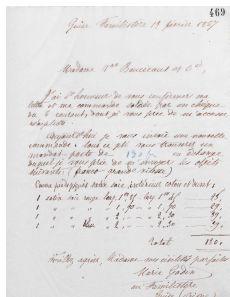 469
Guise Familistère 19 février 1887
Madame Vve Boucicaut et Cie,
J'ai l'honneur de vous confirmer ma
lettre et ma commande soldée par un chèque
du 6 courant, dont je vous prie de m'accuser
réception.
Aujourd'hui je vous envoie une nouvelle
commande. Sous ce pli vous trouverez un
mandat-poste de 130 f en échange
duquel je vous prie de m'envoyer les objets
suivants: (franco-grande vitesse)
1 satin soie rouge
1 " " "
1 " " "
1 " " bleu
Total 130,
Veuillez agréer, Madame, mes civilités parfaites
Marie Godin
au Familistère
Guise (Aisne)